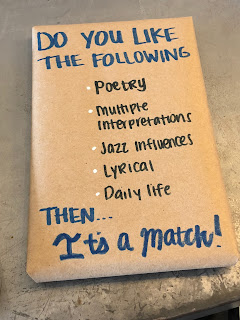 DO YOU LIKE
THE FOLLOWING
• Poetry
• Multiple
interpretations
• Jazz influences
• Lyrical
• Daily life
THEN...
It's a Match!